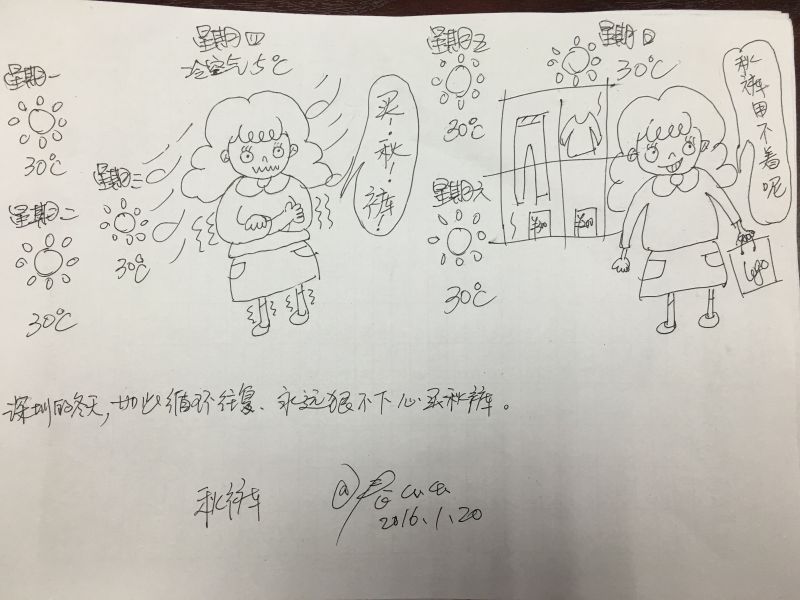 星期一
30℃
星期二
30℃
星期三
30℃
星期四
冷空气 5℃
买!秋!裤!
星期五
30℃
星期六
30℃
星期日
30℃
秋裤用不着呢
logo
深圳的冬天,如此循环往复、永远狠不下心买秋裤。
秋裤
cucu
2016.1.20